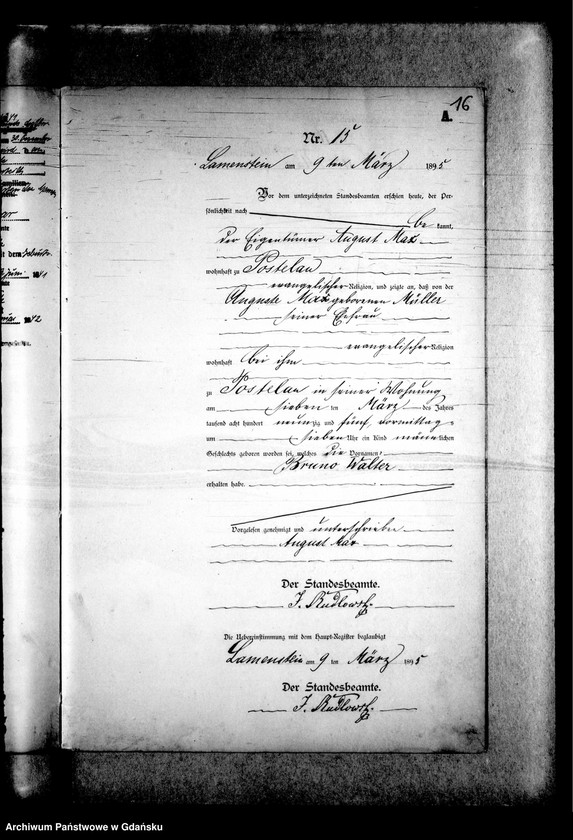 16
A.
Nr. 15
Lamenstein am 9 ten März 1895
Vor dem unterzeichneten Standesbeamten erschien heute, der Per-
sönlichkeit nach be kannt,
der Eigentümer August Max
wohnhaft zu Postelau
evangelischer Religion, und zeigte an, daß von der
Auguste Max geborenen Müller
seiner Ehefrau
evangelischer Religion
wohnhaft bei ihm
zu Postelau in seiner Wohnung
am sieben ten März des Jahres
tausend acht hundert neunzig und fünf, vormittags
um sieben Uhr ein Kind männlichen
Geschlechts geboren worden sei, welches die Vornamen
Bruno Walter
erhalten habe.
Vorgelesen genehmigt und unterschrieben
August Max
Der Standesbeamte.
Die Uebereinstimmung mit dem Haupt-Register beglaubigt
Lamenstein am 9 ten März 1895
Der Standesbeamte.
Archiwum Państwowe w Gdańsku